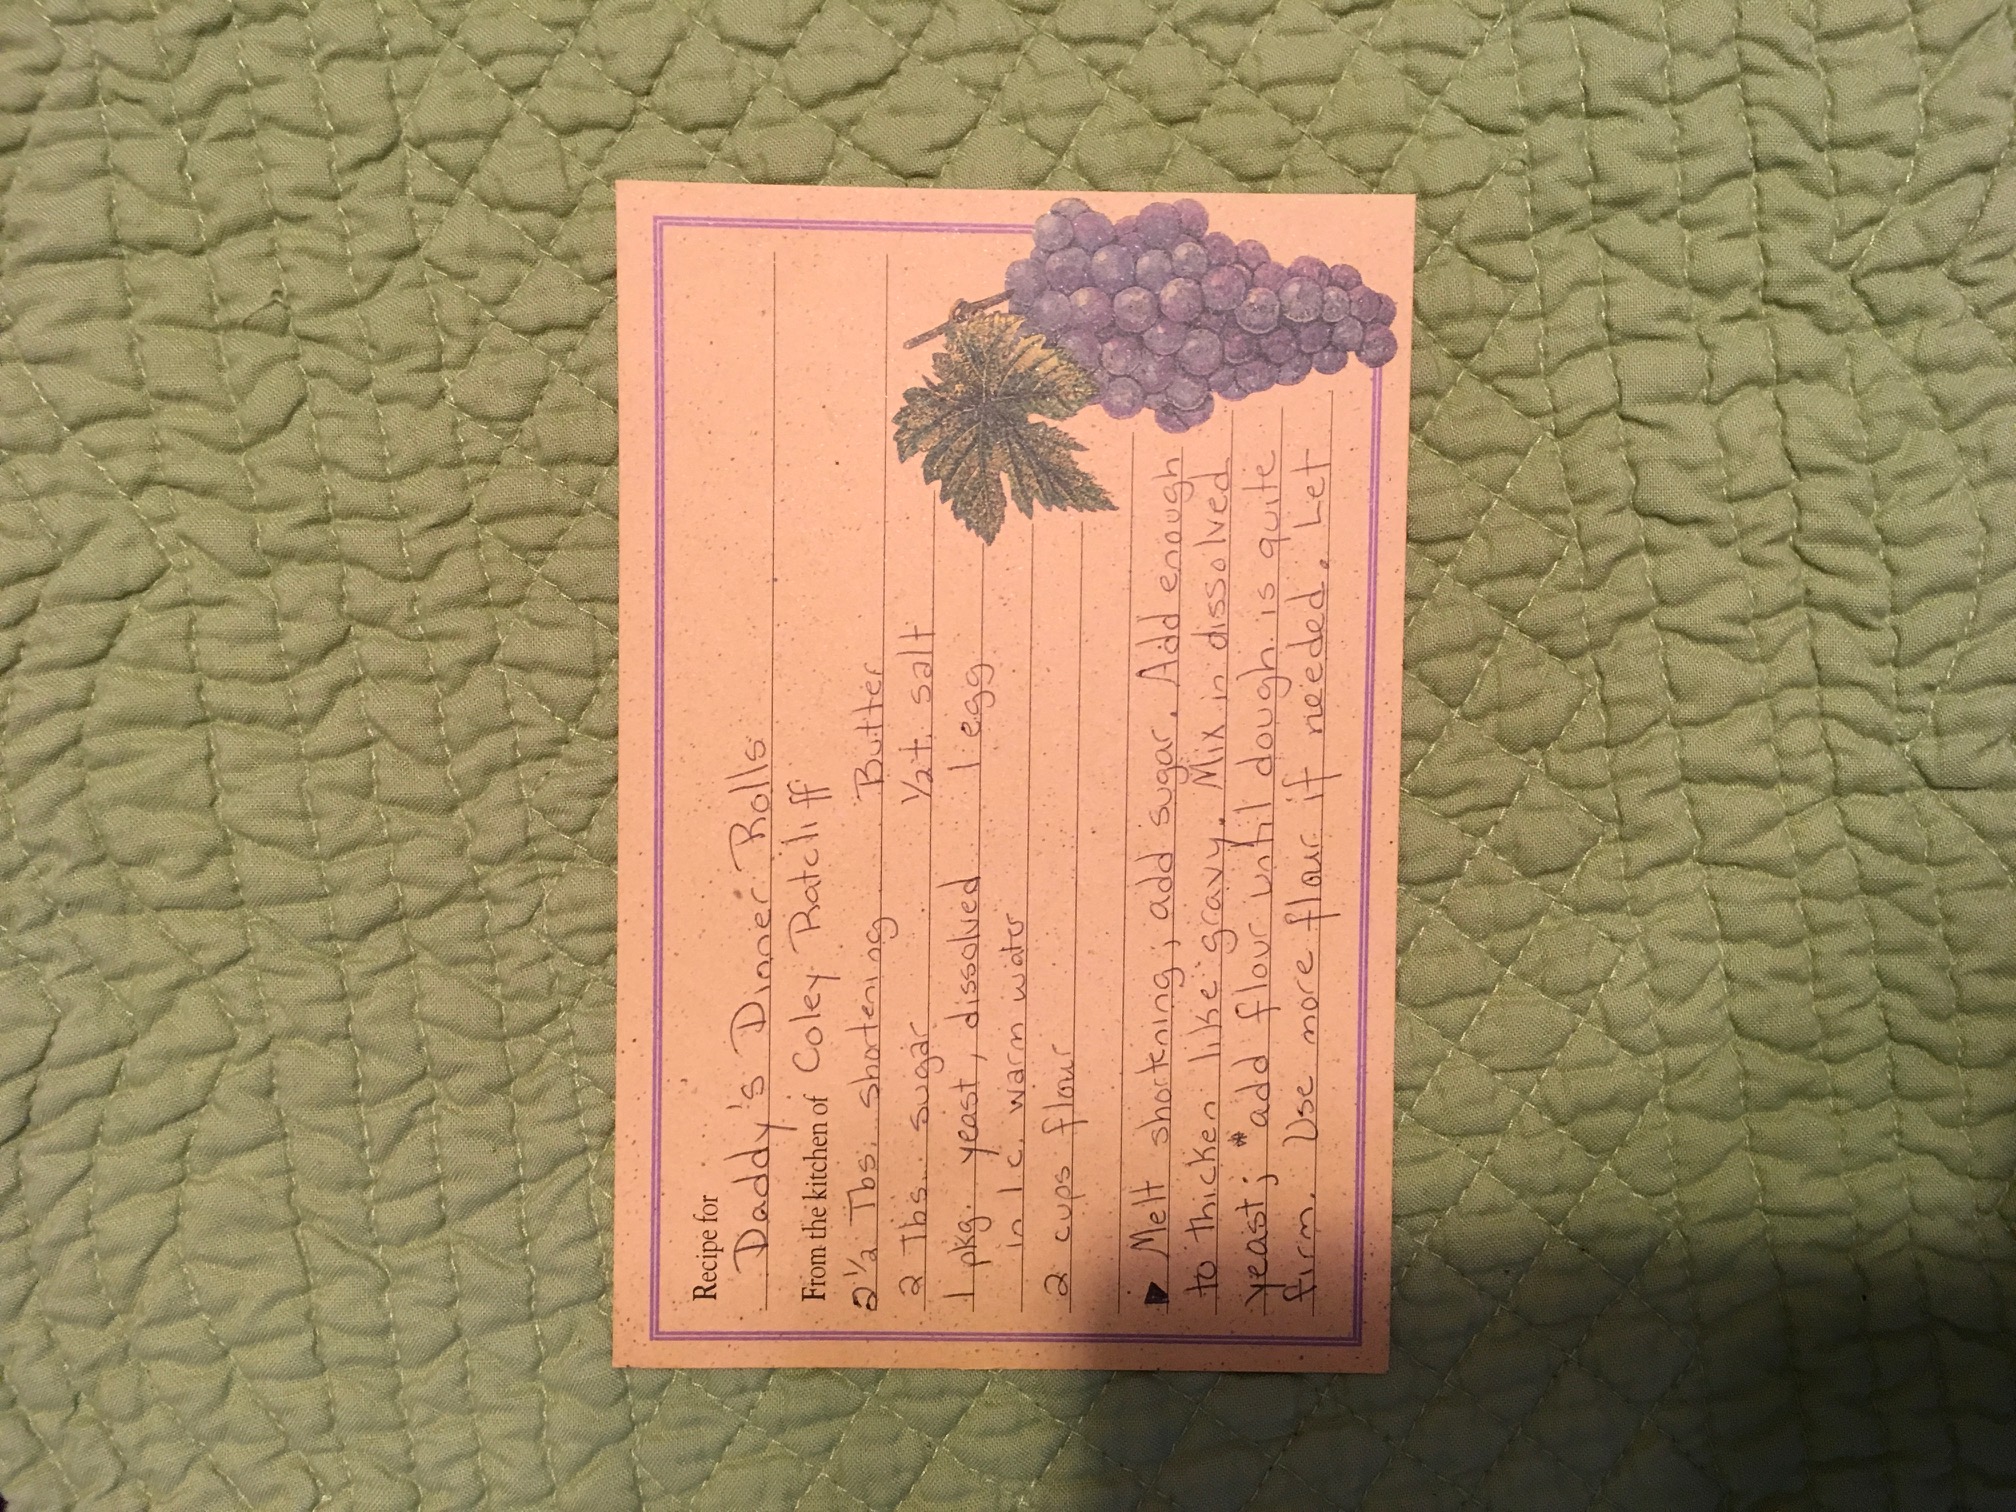 Recipe for
Daddy's Dinner Rolls
From the kitchen of Coley Ratcliff
2 1/2 Tbs. shortening Butter
2 Tbs. sugar 1/2 t. salt
1 pkg. yeast, dissolved 1 egg
in 1 c. warm water
2 cups flour
▶ Melt shortening; add sugar. Add enough
to thicken like gravy. Mix in dissolved
yeast; *add flour until dough is quite
firm. Use more flour if needed. Let